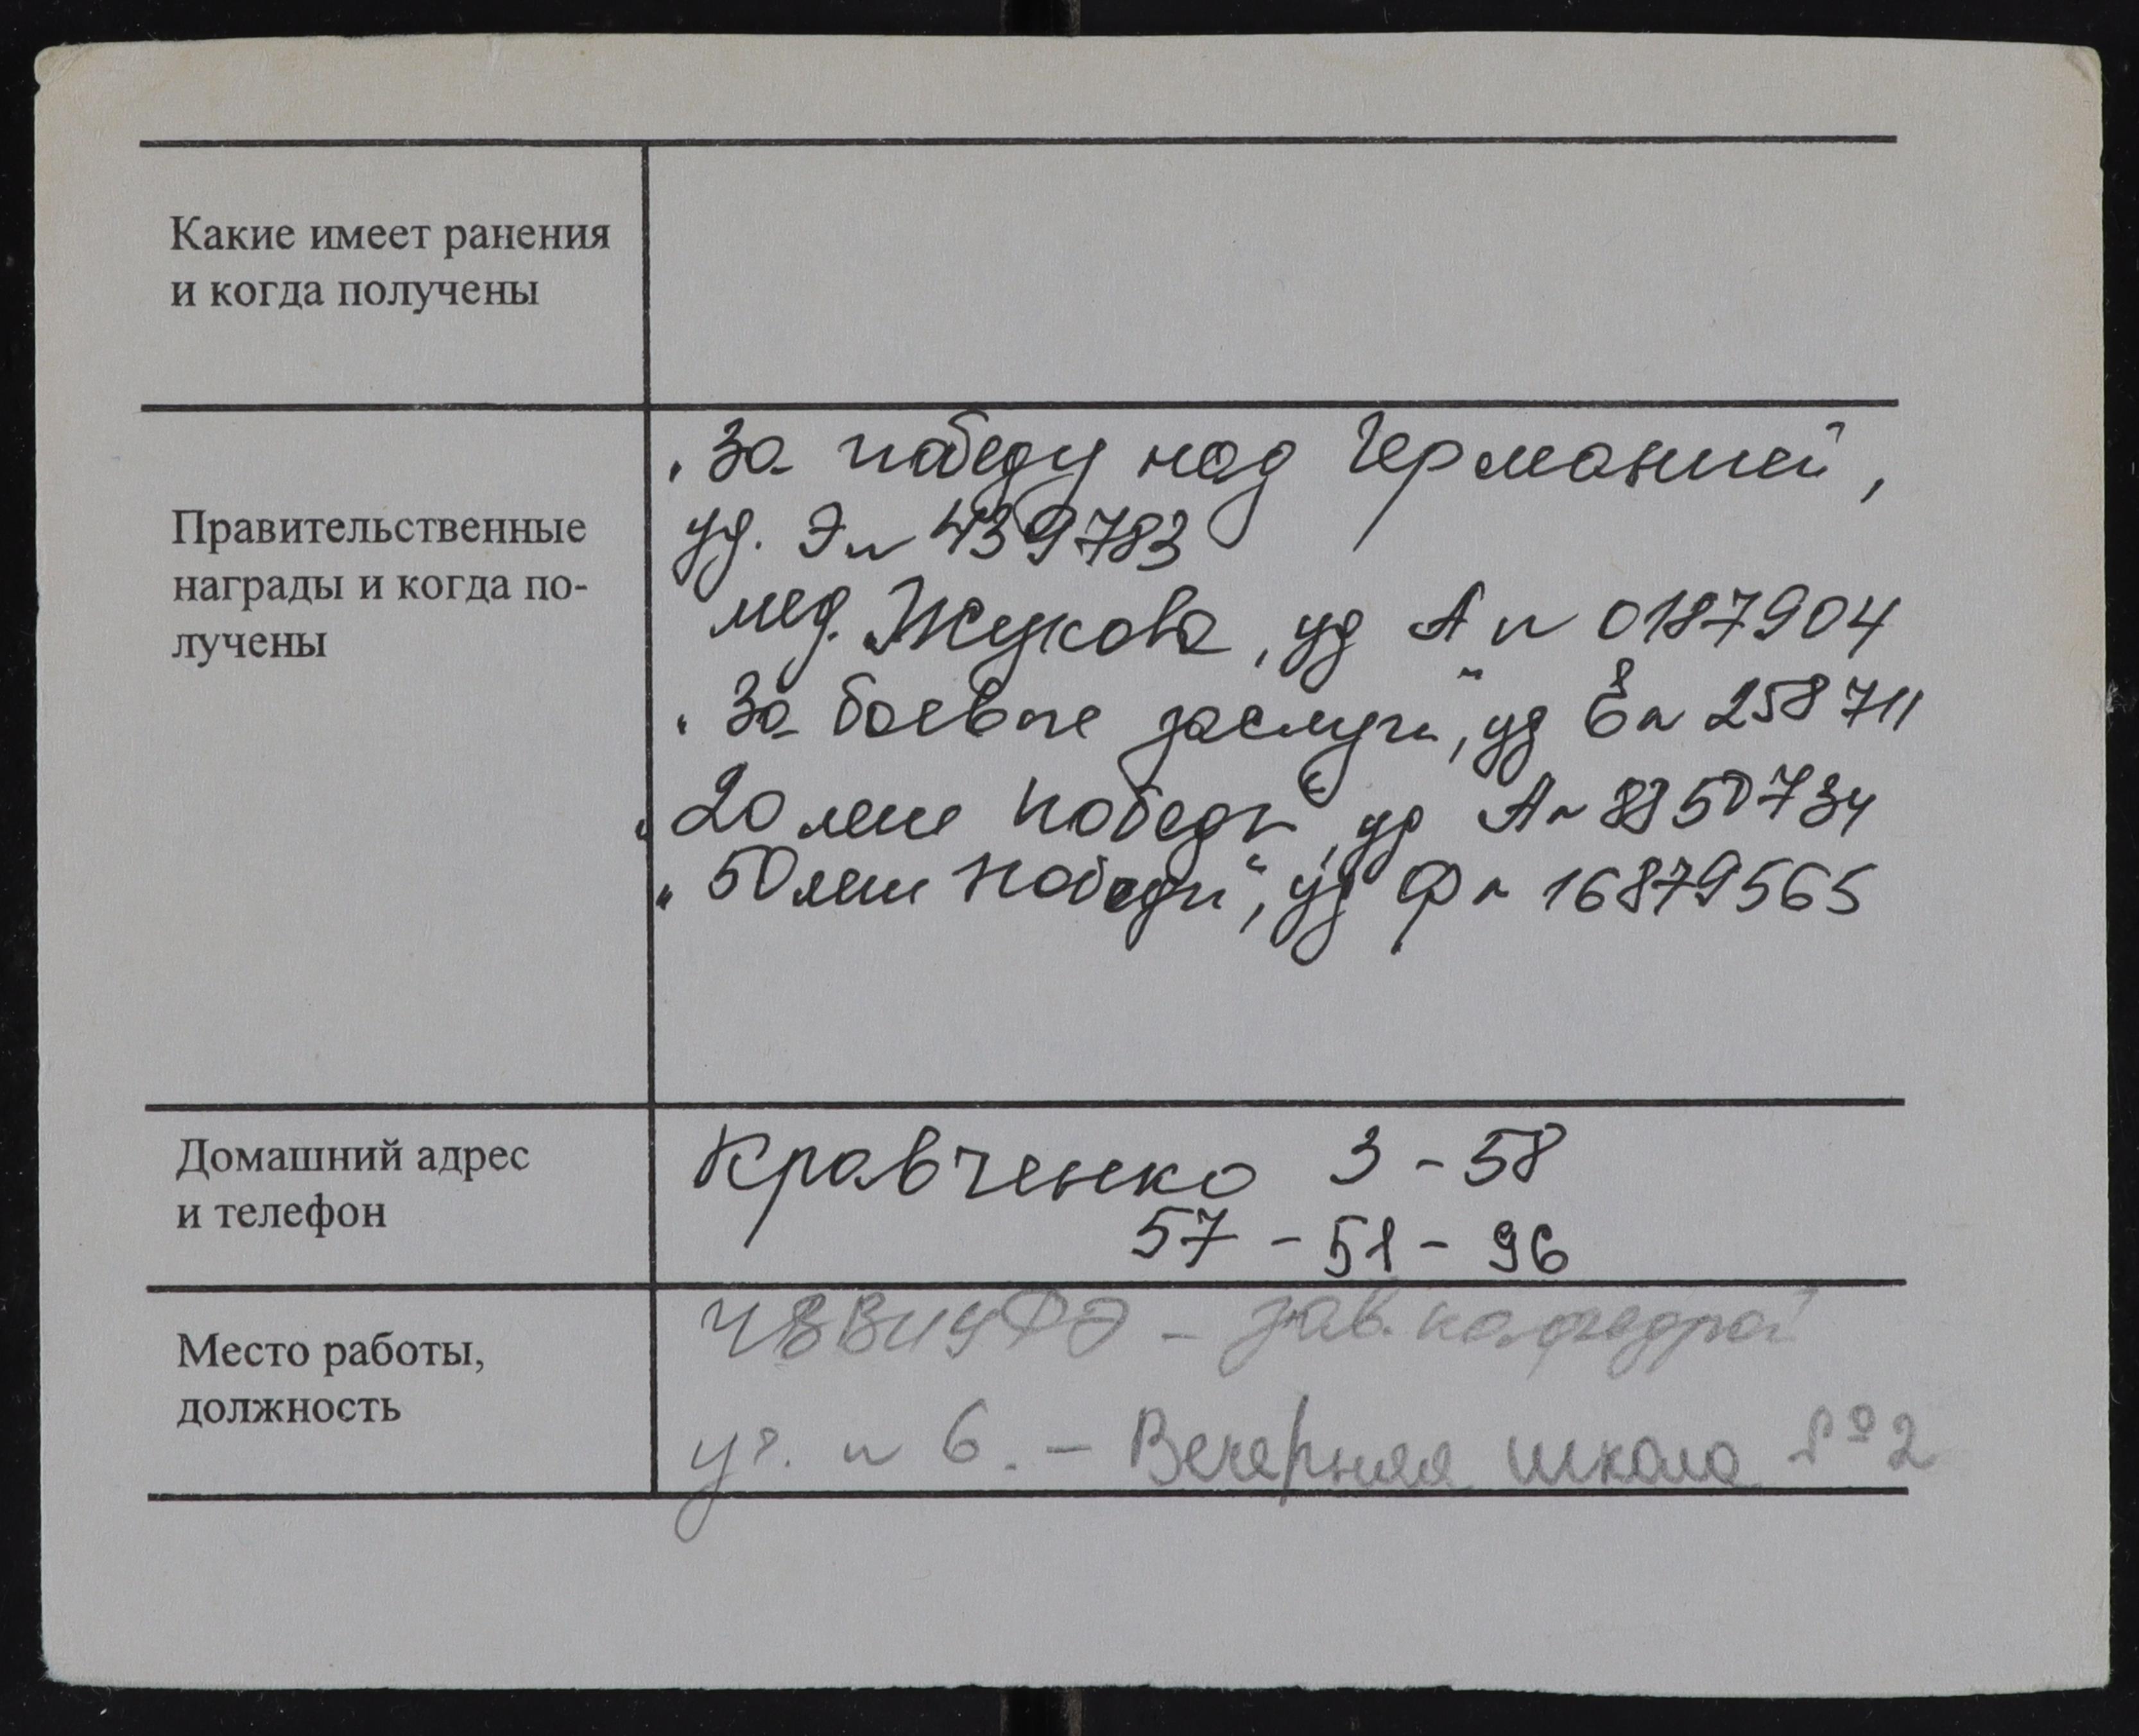 Какие имеет ранения
и когда получены
Правительственные
награды и когда по-
лучены
„За победу над Германией",
уд. Э № 439783
мед. Жукова, уд А № 0187904
„За боевые заслуги", уд Е № 258711
„20 лет победы", уд А № 8350734
„50 лет победы", уд Ф № 16879565
Домашний адрес
и телефон
Кравченко 3-58
57-51-96
Место работы,
должность
зав. кафедрой
уч. № 6. - Вечерняя школа №2